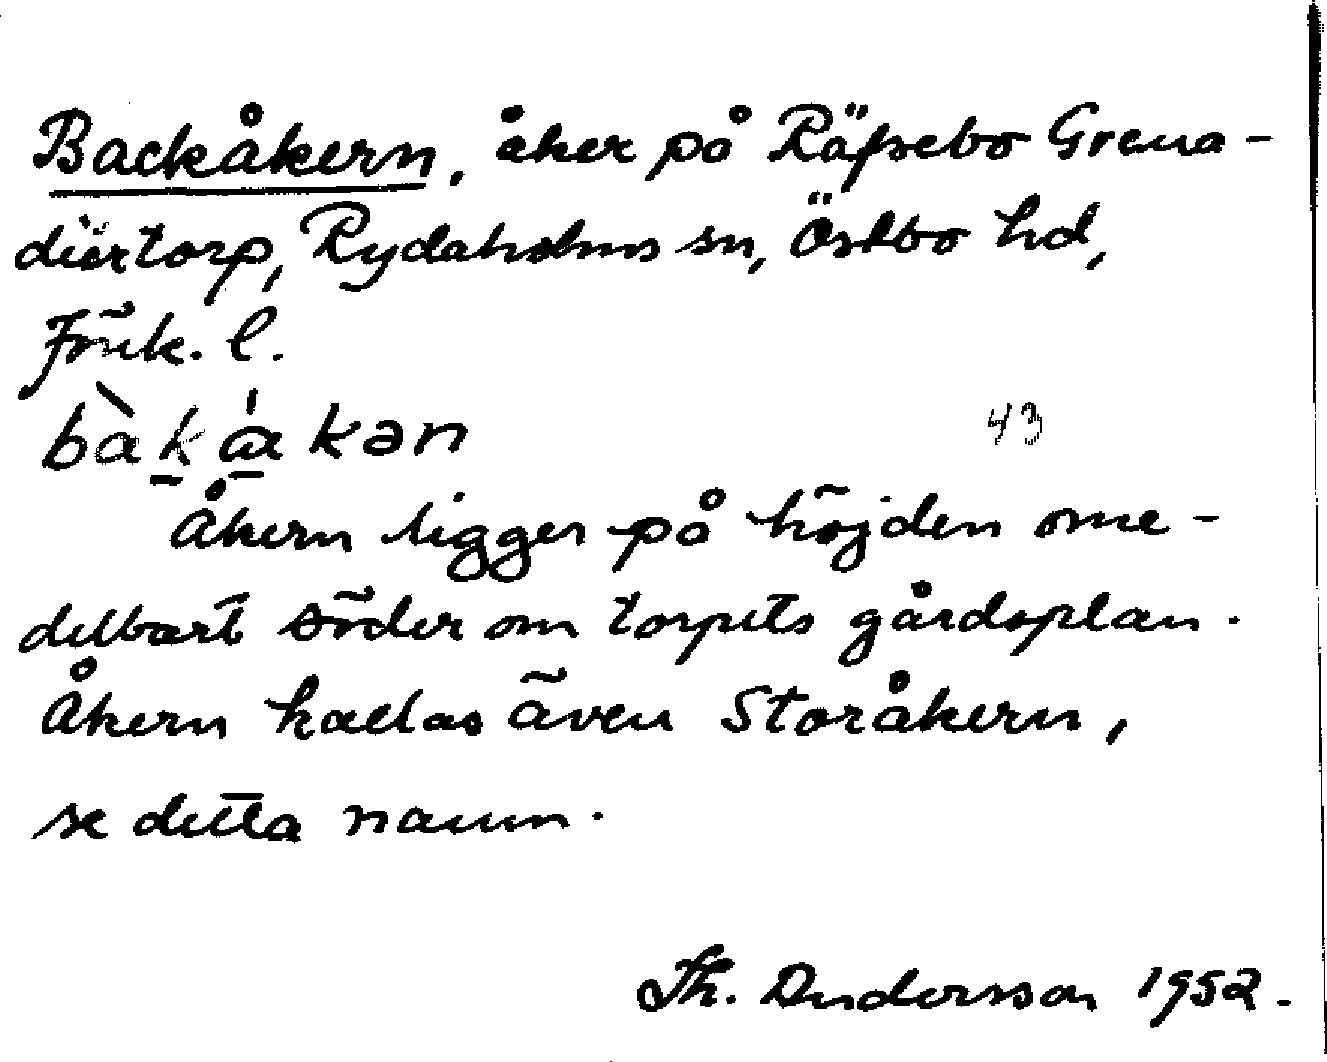 Backåkern, åker på Räfsebo Grena-
diärtorp, Rydaholms sn, Östbo hd,
Jönk. l.
bàkåkən 43
Åkern ligger på höjden ome-
delbart söder om torpets gårdsplan.
Åkern kallas även Storåkern,
se detta namn.
Th. Andersson 1952.